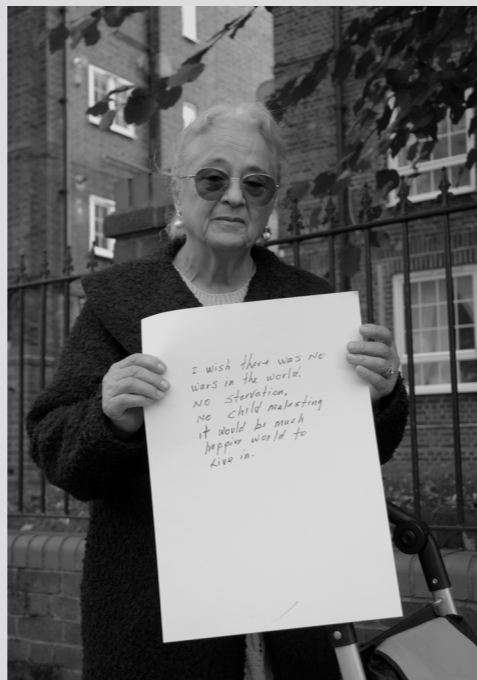 I wish there was NO
wars in the world.
NO Starvation,
NO child molesting
it would be much
happier world to
Live in.